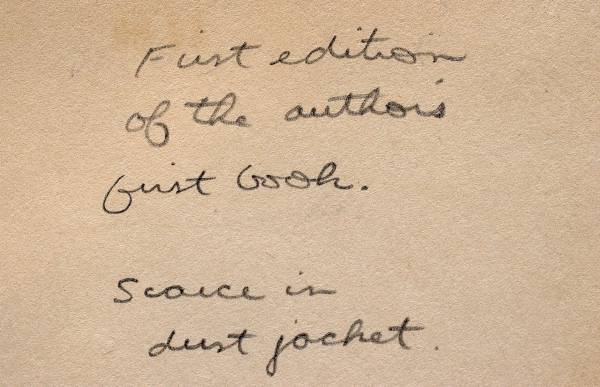 First edition
of the author's
first book.
Scarce in
dust jacket.